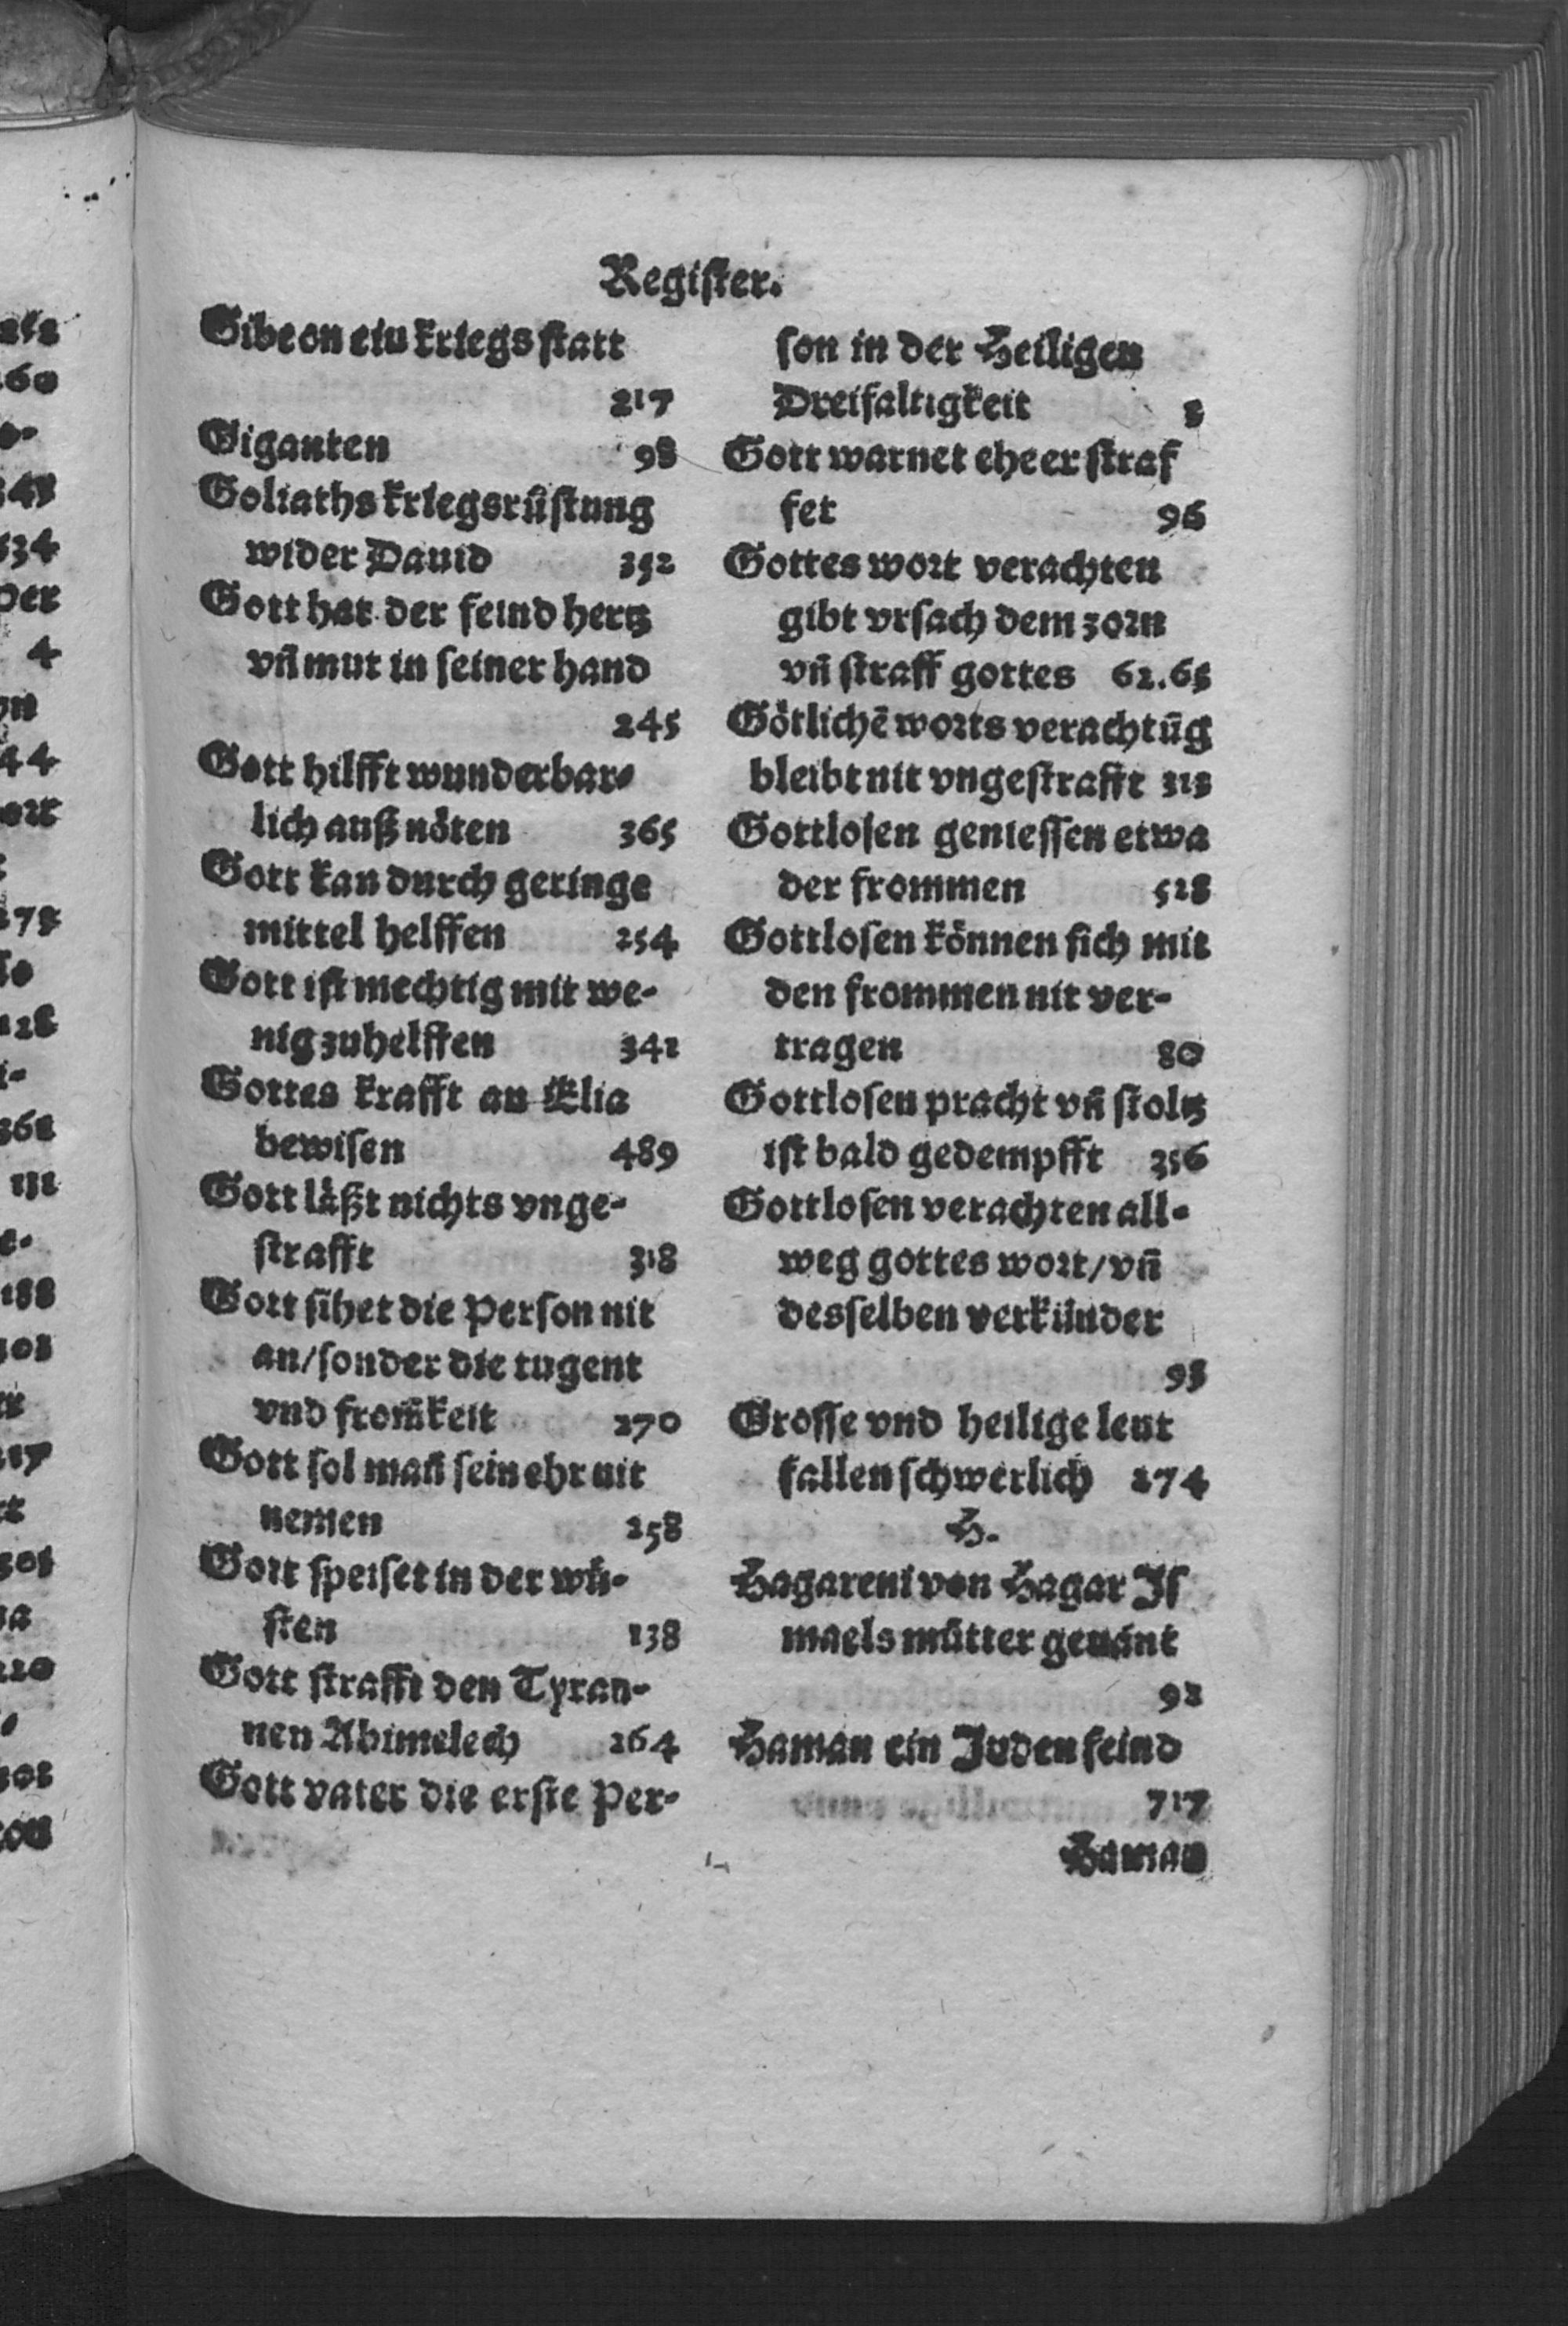 Regiſter.
Gibeon ein kriegs ſtatt
217
Giganten 98
Goliaths kriegsrüſtung
wider Dauid 352
Gott hat der feind hertz
vn̄ mut in ſeiner hand
245
Gott hilfft wunderbar-
lich auß nöten 365
Gott kan durch geringe
mittel helffen 254
Gott iſt mechtig mit we-
nig zuhelffen 342
Gottes krafft an Elia
bewiſen 489
Gott läßt nichts vnge-
ſtrafft 318
Gott ſihet die Perſon nit
an/ſonder die tugent
vnd from̄keit 270
Gott ſol man̄ ſein ehr nit
nemen 258
Gott ſpeiſet in der wü-
ſten 138
Gott ſtrafft den Tyran-
nen Abimelech 264
Gott vater die erſte Per-
ſon in der Heiligen
Dreifaltigkeit
Gott warnet ehe er ſtraf
fet 96
Gottes wort verachten
gibt vrſach dem zorn
vn̄ ſtraff gottes 62.65
Götlichē worts verachtūg
bleibt nit vngeſtrafft 313
Gottloſen genieſſen etwa
der frommen 528
Gottloſen können ſich mit
den frommen nit ver-
tragen 80
Gottloſen pracht vn̄ ſtoltz
iſt bald gedempfft 356
Gottloſen verachten all-
weg gottes wort/vn̄
desſelben verkünder
93
Groſſe vnd heilige leut
fallen ſchwerlich 274
H.
Hagareni von Hagar Jſ
maels mūtter genānt
92
Haman ein Juden feind
717
Haman